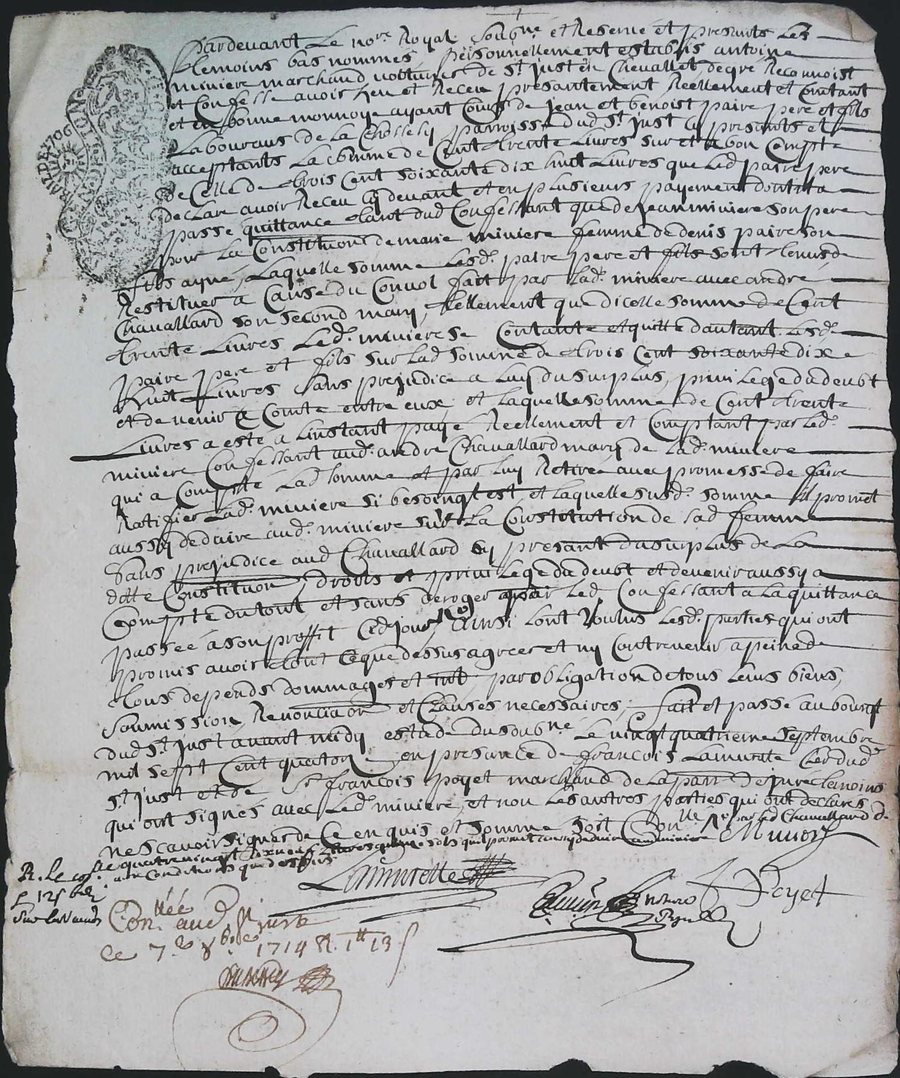 Pardevant Le no.re Royal soubne et Reserve et presants Les
temoins bas nommés, personnellement establis antoine
miniere marchand voiturie de St just en Chevallet, de gre Reconnoist
et Confesse avoir heu et Receu presantement Reellement et Contant
et en bonne monnoye ayant Cours de jean et benoist paire pere et fils
Labourans de la parroisse dud St just Cy presants et
acceptants La somme de Cent trente Livres sur et a bon Compte
de Celle de trois Cent soixante dix huit Livres que Led paire pere
declare avoir Receu Cy devant et en plusieurs payement dont il a
passe quittance tant dud Confessant que de jean miniere son pere
pour La Constituon de marie miniere femme de denis paire son
fils ayne, Laquelle somme Lesd. paire pere et fils sont tenus de
Restituer a Cause du Convol fait par Lad. miniere avec andre
Chavallard son second mary, tellement que dicelle somme de Cent
trente Livres Led. miniere se Contante et quitte dautant Lesd.
paire pere et fils sur Lad somme de trois Cent soixante dix e
huit Livres sans prejudice a Luy du surplus, privilege du deubt
et de venir a Comte entre eux, et Laquelle somme de Cent trente
Livres a este a Linstant paye Reellement et Comptant par Led.
miniere Confessant aud. andre Chavallard mary de Lad. miniere
qui a Compte Lad somme et par Luy Retiree avec promesse de faire
Ratifier Lad. miniere si besoingt est, et Laquelle susd. somme il promet
aussy dedaire aud. miniere sur La Constitution de sad femme
sans prejudice aud Chavallard Cy presant du surplus de La
dotte Constituon, droits et privilege du deubt et de venir aussy a
Compte du tout, et sans deroger par Led Confessant a La quittance
passée a son proffit Cejourd Ainsi Lont Voulus Lesd. parties qui ont
promis avoir tout Ce que dessus agreer et ny Contrevenir a peine de
tous depends dommages et int par obligation de tous Leurs biens,
soumission Renonciaon et Clauses necessaires, fait et passe au bourg
dud St just avant midy estude du soubne Le vingt quatrieme septembre
mil sept Cent quatorze en presance de francois Lamurette Clerc dud
St just et de Sr francois poyet marchand de La parr de jure temoins
qui ont signes avec Led. miniere, et non Les autres parties qui ont declares
ne scavoir signer de Ce enquis et somme soit Con.lle par Led Chavallard de
Miniere
au Conditions que dessus
Lamurette
Poyet
R. Le
Con.llée aud. St just
ce 7.e 8bre 1714 R. 1tt 13 s